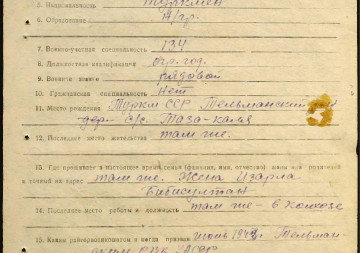 5. Национальность туркмен
6. Образование н/гр.
7. Военно-учетная специальность 134
8. Должностная квалификация
9. Воинское звание рядовой
10. Гражданская специальность Нет
11. Место рождения Туркм ССР Тельманский
с/с Таза-кала
3
12. Последнее место жительства там же.
13. Где проживает в настоящее время семья (фамилия, имя, отчество) жены или родителей
и точный их адрес там же. Жена
Бибисултан
14. Последнее место работы и должность там же - в колхозе
15. Каким райвоенкоматом и когда призван июнь Тельман-
ским РВК